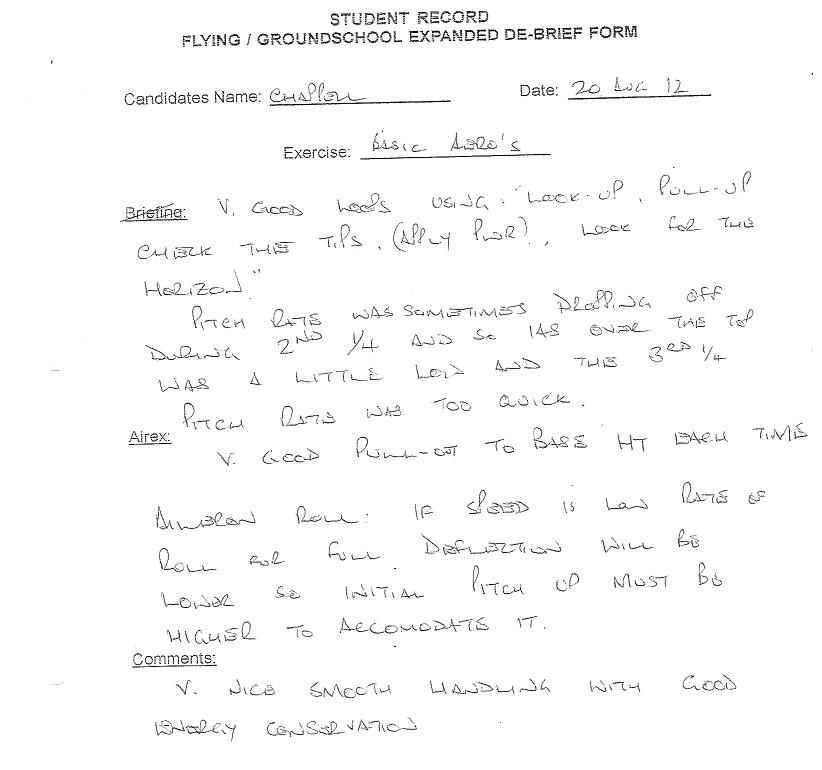 STUDENT RECORD
FLYING / GROUNDSCHOOL EXPANDED DE-BRIEF FORM
Candidates Name: CHAPPELL Date: 20 AUG 12
Exercise: BASIC AERO'S
Briefing: V. GOOD LOOPS USING. "LOOK-UP, PULL-UP
CHECK THE TIPS, (APPLY PWR), LOOK FOR THE
HORIZON."
PITCH RATE WAS SOMETIMES DROPPING OFF
DURING 2ND 1/4 AND SO IAS OVER THE TOP
WAS A LITTLE LOW AND THE 3RD 1/4
PITCH RATE WAS TOO QUICK.
Airex: V. GOOD PULL-OUT TO BASE HT EACH TIME
AILERON ROLL: IF SPEED IS LOW RATE OF
ROLL FOR FULL DEFLECTION WILL BE
LOWER SO INITIAL PITCH UP MUST BE
HIGHER TO ACCOMODATE IT.
Comments:
V. NICE SMOOTH HANDLING WITH GOOD
ENERGY CONSERVATION